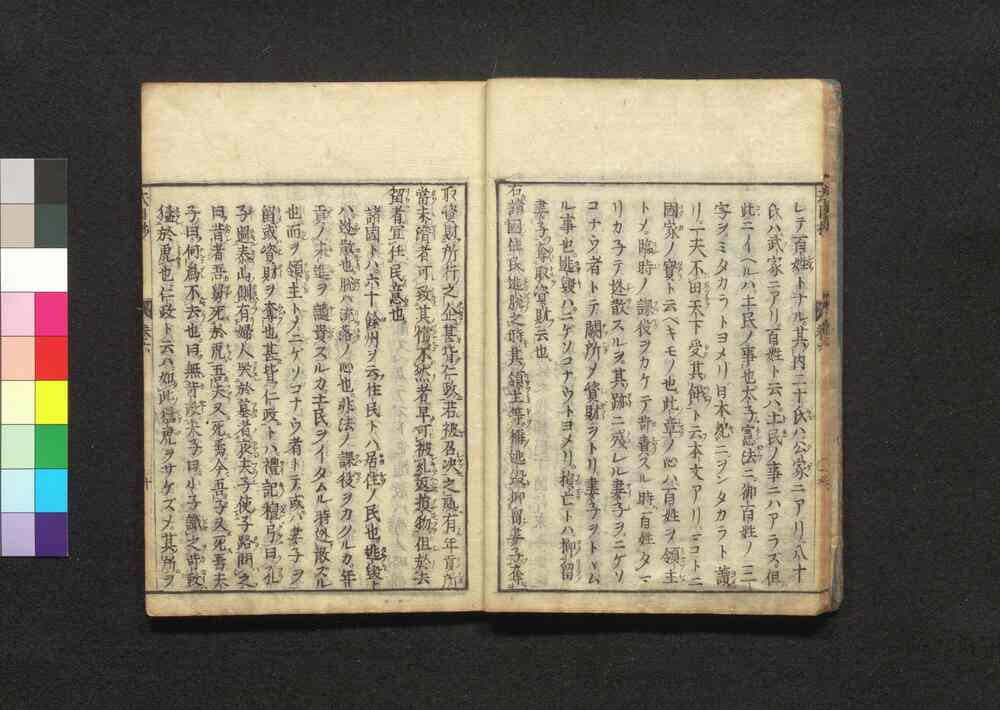 レテ百姓トナル其内二十氏ハ公家ニアリ八十
氏ハ武家ニアリ百姓ト云ハ土民ノ事ニハアラズ但
此ニイヘルハ土民ノ事也太子憲法ニ御百姓ノ三
字ヲミタカラトヨメリ日本紀ニヲンタカラト讀
リ一夫不田天下受其飢ト云本文アリマコトニ
國家ノ寶ト云ヘキモノ也此章ノ心ハ百姓ヲ領主
トメ臨時ノ課役ヲカケテ苛責スル時百姓タマ
リカ子テ逃散スルヲ其跡ニ残レル妻子ヲニケソ
コナウ者トテ闕所メ貨財ヲトリ妻子ヲトヽム
ル事也逃毀ハニゲソコナウトヨメリ拘亡トハ抑留
妻子奪取資財云也
右諸國住民逃脱之時其領主等稱逃毀抑留妻子奪
取資財所行之企甚背仁政若被召决之處有年貢所
當未濟者可致其償不然者早可被糺返損物但於去
留者宜任民意也
諸國トハ六十餘州ヲ云住民トハ居住ノ民也逃脱ト
ハ逃散也脱ハ流落ノ心也非法ノ課役ヲカクルカ年
貢ノ未進ヲ譴責スルカ土民ヲイタムル時逃散スル
也而ヲ領主トメニケソコナウ者トテ或ハ妻子ヲ
留或資財ヲ奪也甚背仁政トハ禮記檀弓曰孔
子過泰山側有婦人哭於墓者哀夫子使子路問之
曰昔者吾舅死於虎吾夫又死焉今吾子又死焉夫
子曰何爲不去也曰無苛政夫子曰小子識之苛政
猛於虎也仁政ト云ハ如此猛虎ヲサケズメ其所ヲ